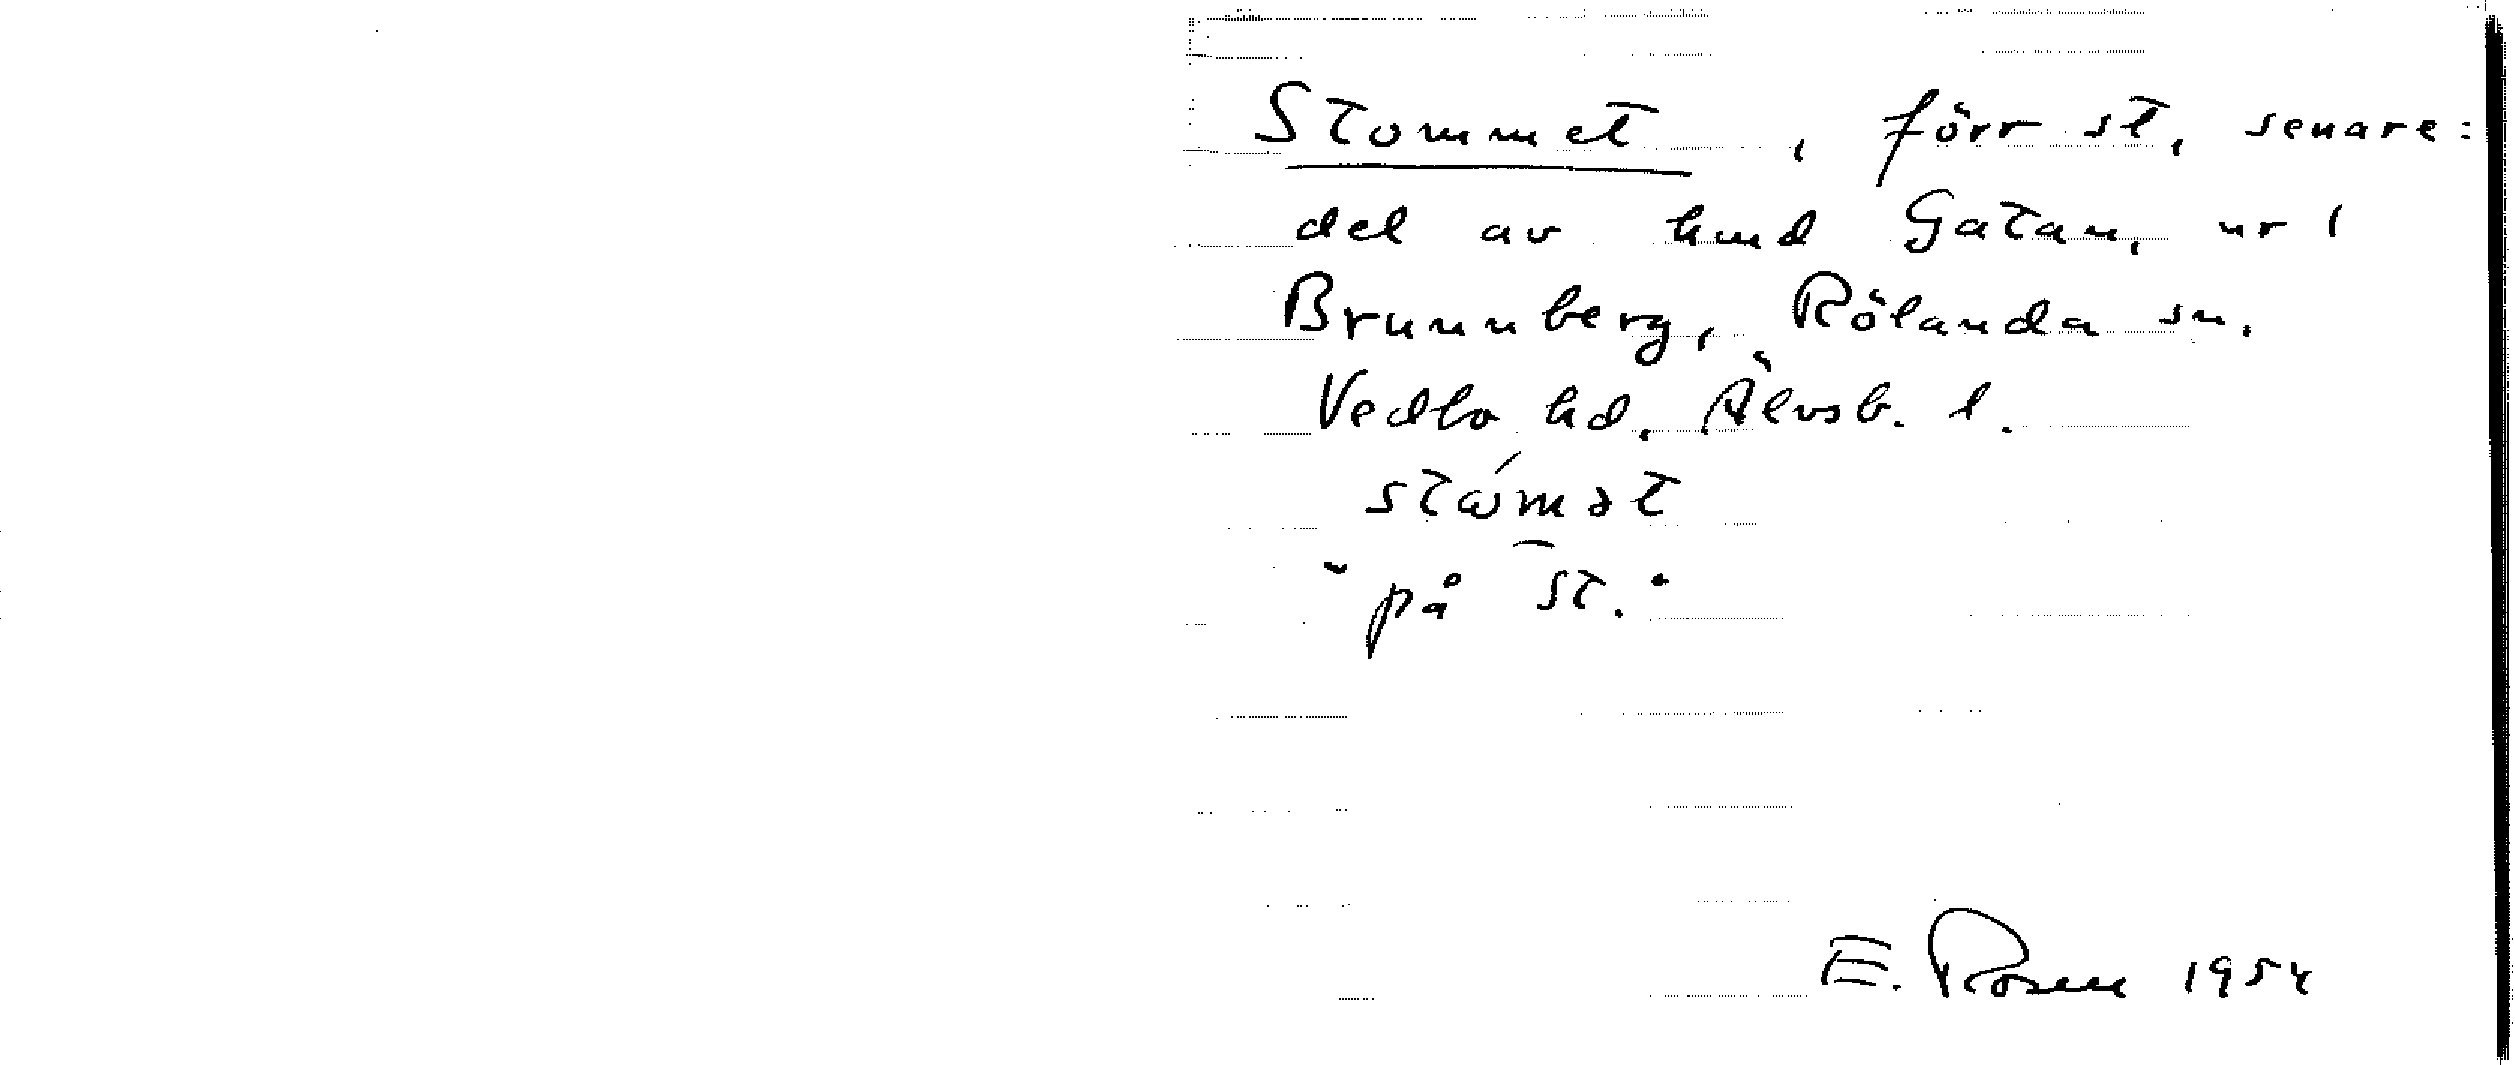 Stommet, förr st, senare:
del av hmd Gatan, nr 1
Brunnberg, Rölanda sn.
Vedbo hd. Älvsb. l.
stώmət
"på st."
E. Rosen 1954